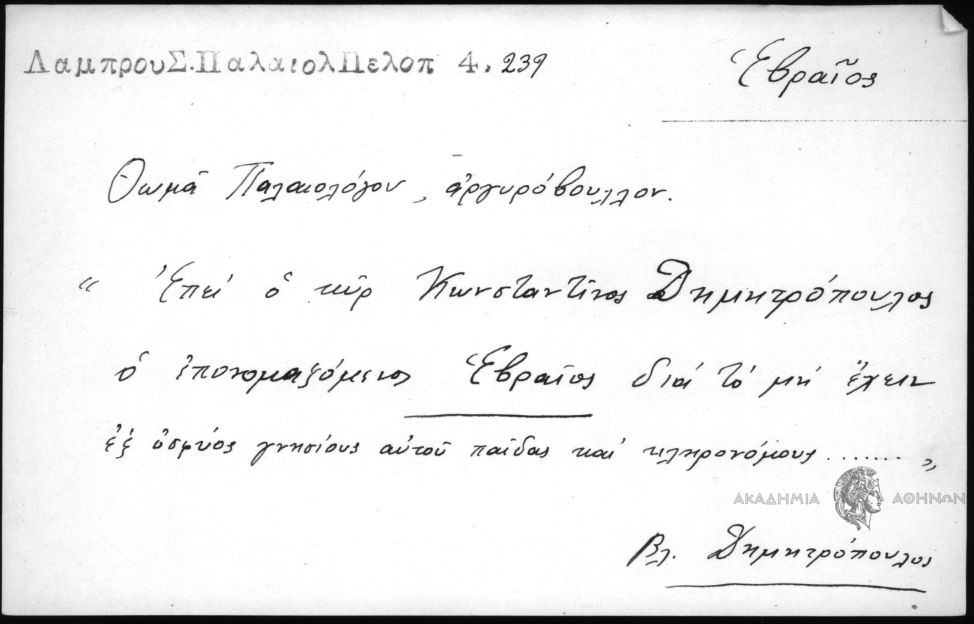 ΛαμπρουΣ.ΠαλαιολΠελοπ 4.239
Ἑβραῖος
Θωμᾶ Παλαιολόγου, ἀργυρόβουλλον.
“ Ἐπεί ὁ κύρ Κωνσταντῖνος Δημητρόπουλος
ὁ ἐπονομαζόμενος Ἑβραῖος διά τό μή ἔχειν
ἐξ ὀσφύος γνησίους αὐτοῦ παῖδας καί κληρονόμους ....... „
ΑΚΑΔΗΜΙΑ ΑΘΗΝΩΝ
βλ. Δημητρόπουλος